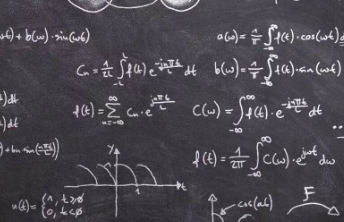 ωt) + b(ω)·sin(ωt)
a(ω) = 1/π ∫_{-∞}^{∞} f(t)·cos(ωt)d
C_n = 1/2L ∫_{-L}^{L} f(t) e^{-jnπt/L} dt
b(ω) = 1/π ∫_{-∞}^{∞} f(t)·sin(ωt)
)dt
f(t) = ∑_{n=-∞}^{∞} C_n · e^{jnπt/L}
C(ω) = ∫_{-∞}^{∞} f(t)·e^{-jnπt/L} dt
)dt
) + b_n sin(nπt/L))
f(t) = 1/2π ∫_{-∞}^{∞} C(ω)·e^{jωt} dω
y
t
u(t) = {1, t≥0
0, t<0
cos(at)
F